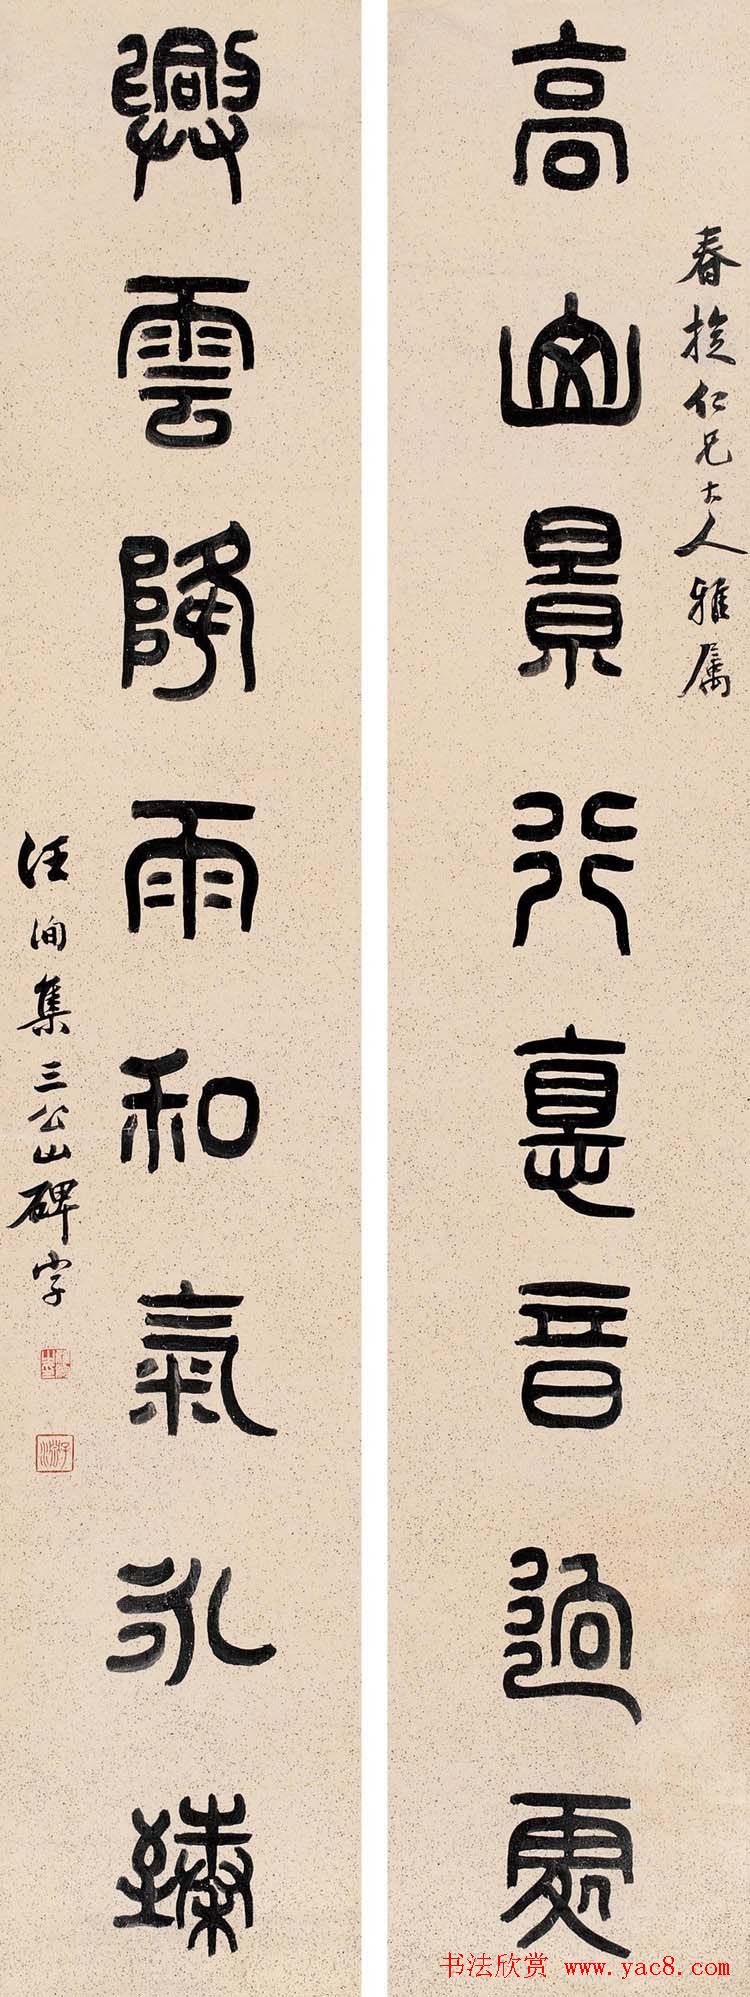 春仁兄大人雅属
高山景行悳音逈處
興雲降雨和氣永臻
汪洵集三公山碑字
书法欣赏 www.yac8.com